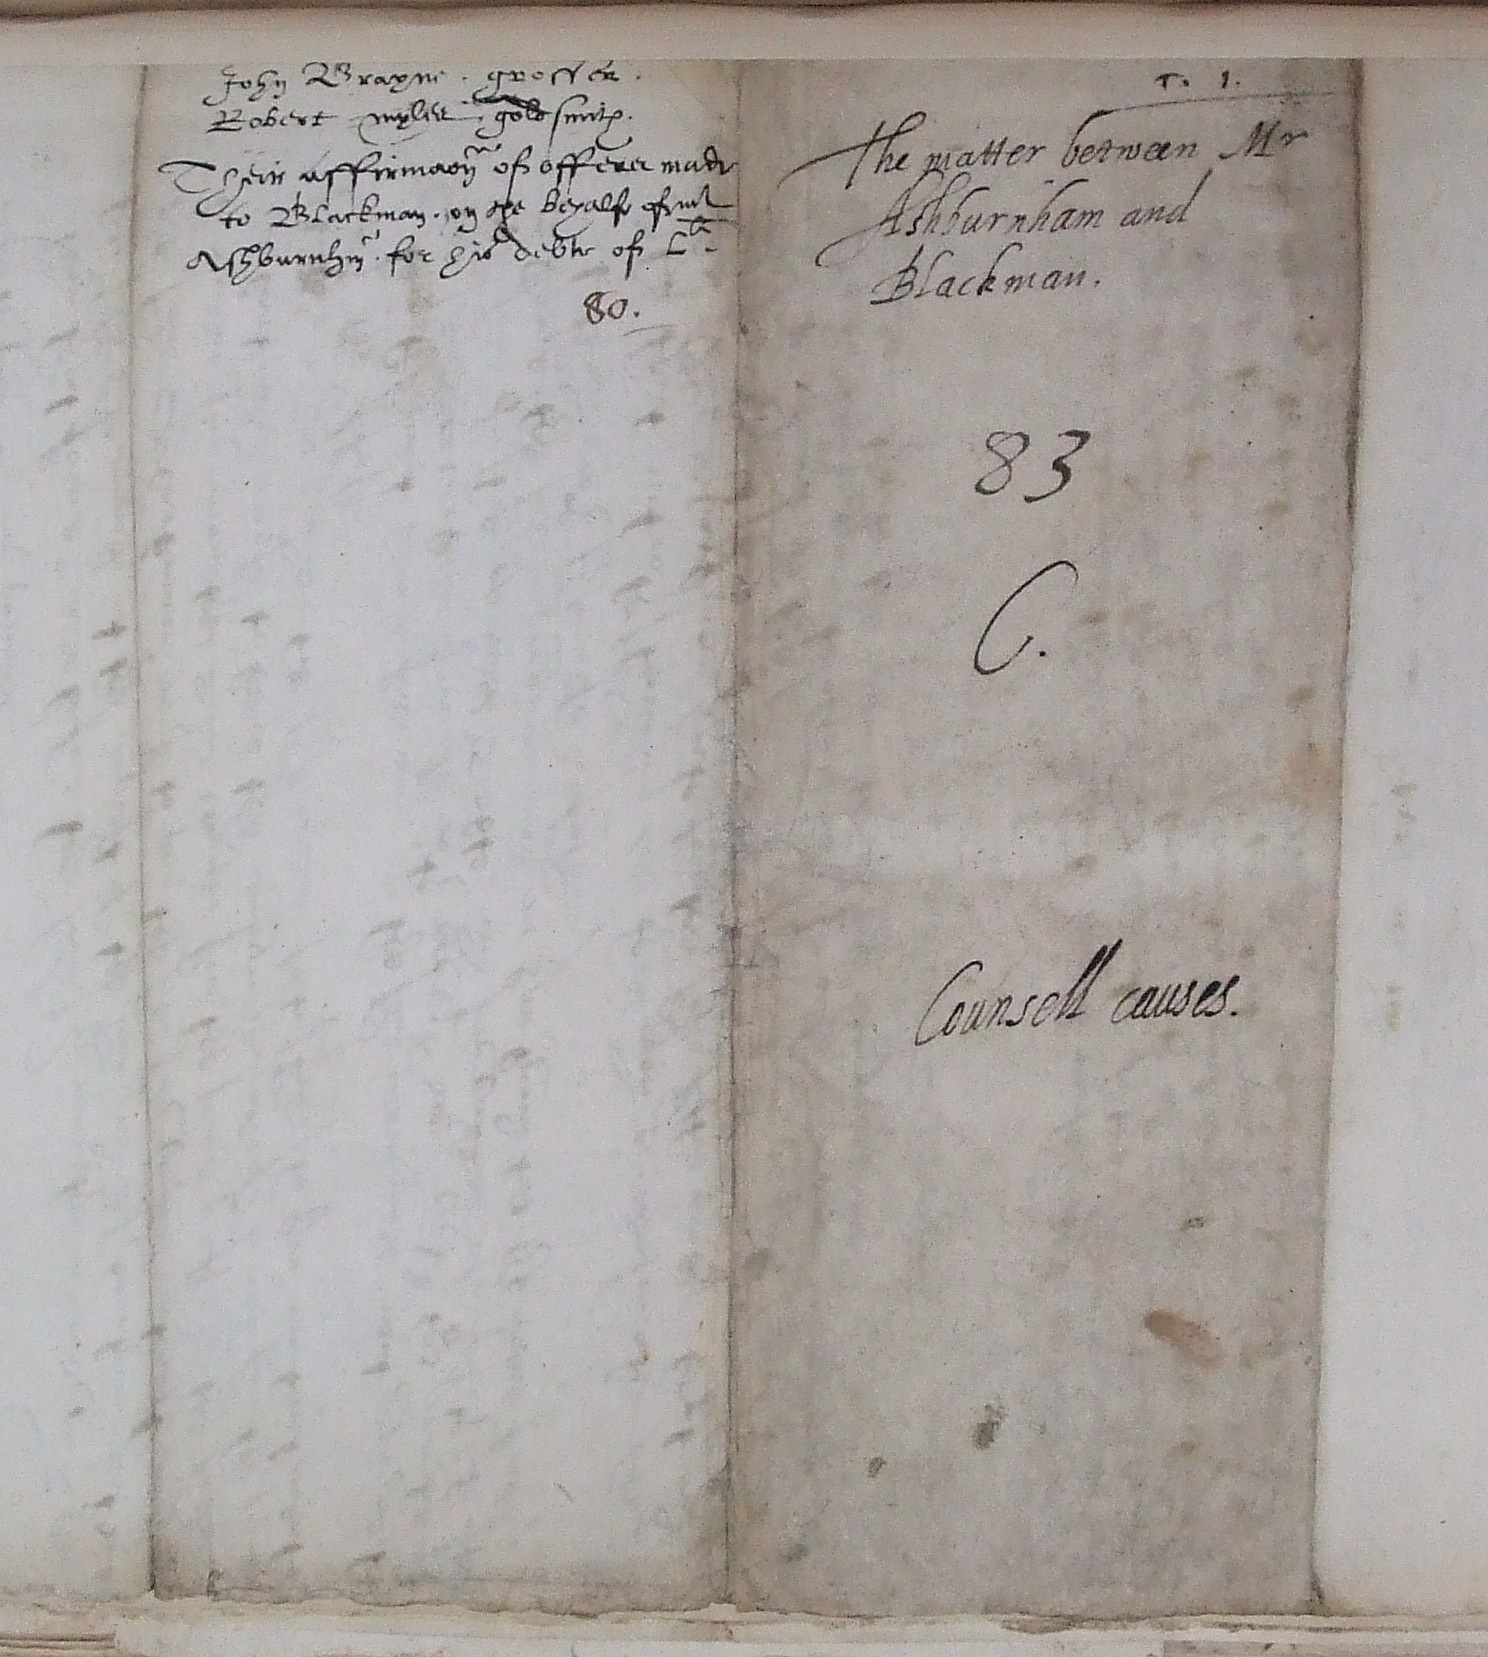 John Brayne . grosser .
Robert myles . goldsmith .
Their affirmacon of offeres made
to Blackman . on the behalfe of mr
Ashburnhm . for his debte of Lli .
80 .
T. 1.
The matter between Mr
Ashburnham and
Blackman.
83
C.
Counsell causes.